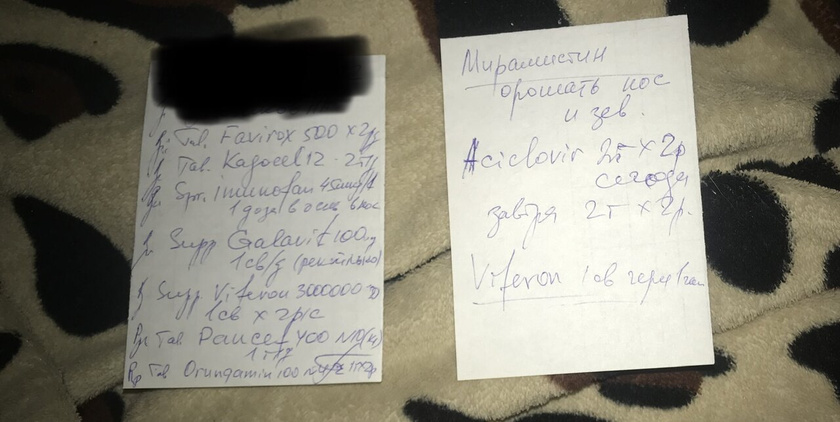 Tab. Favirox 500 x 2р/д
Tab. Kagocel 12 - 2т/
Spr. imunofan 45
1 доза в нос
Supp Galavit 100
1 св/д (ректально)
Supp. Viferon 3000000
1 св x 2р/с
Rp Tab. Pancef 400 N10
1 т/д
Rp Tab Orungamin 100
Мирамистин
орошать нос
и зев.
Aciclovir 2т x 2р
сегодя
завтра 2т x 2р.
Viferon 1 св через 1